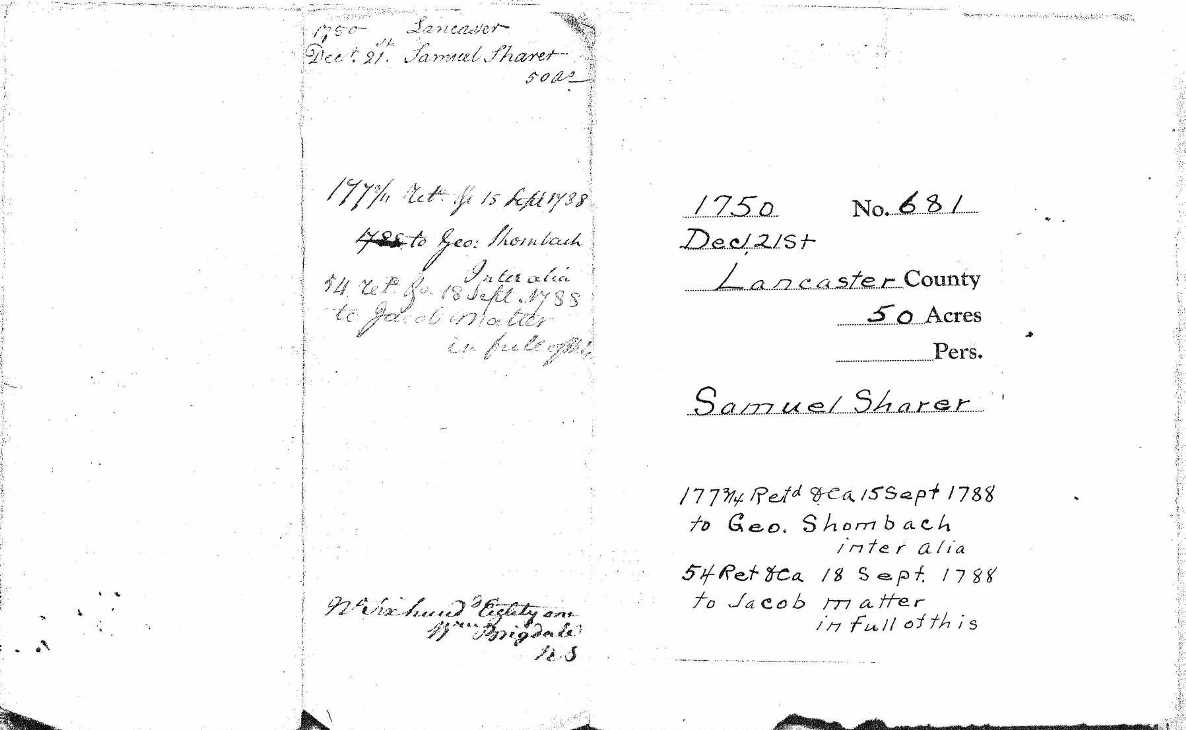 1750 Lancaster
Decr. 21st. Samuel Sharer
50 as
177 Retd. 15 Sept 1788
to Geo: Shombach
Inter alia
54 Ret. 18 Sept. 1788
to Jacob Matter
in full of this
No. Six hund'd Eighty one
1750 No. 681
Dec 21st
Lancaster County
50 Acres
Pers.
Samuel Sharer
177 3/4 Retd &Ca 15 Sept 1788
to Geo. Shombach
inter alia
54 Ret &Ca 18 Sept. 1788
to Jacob matter
in full of this